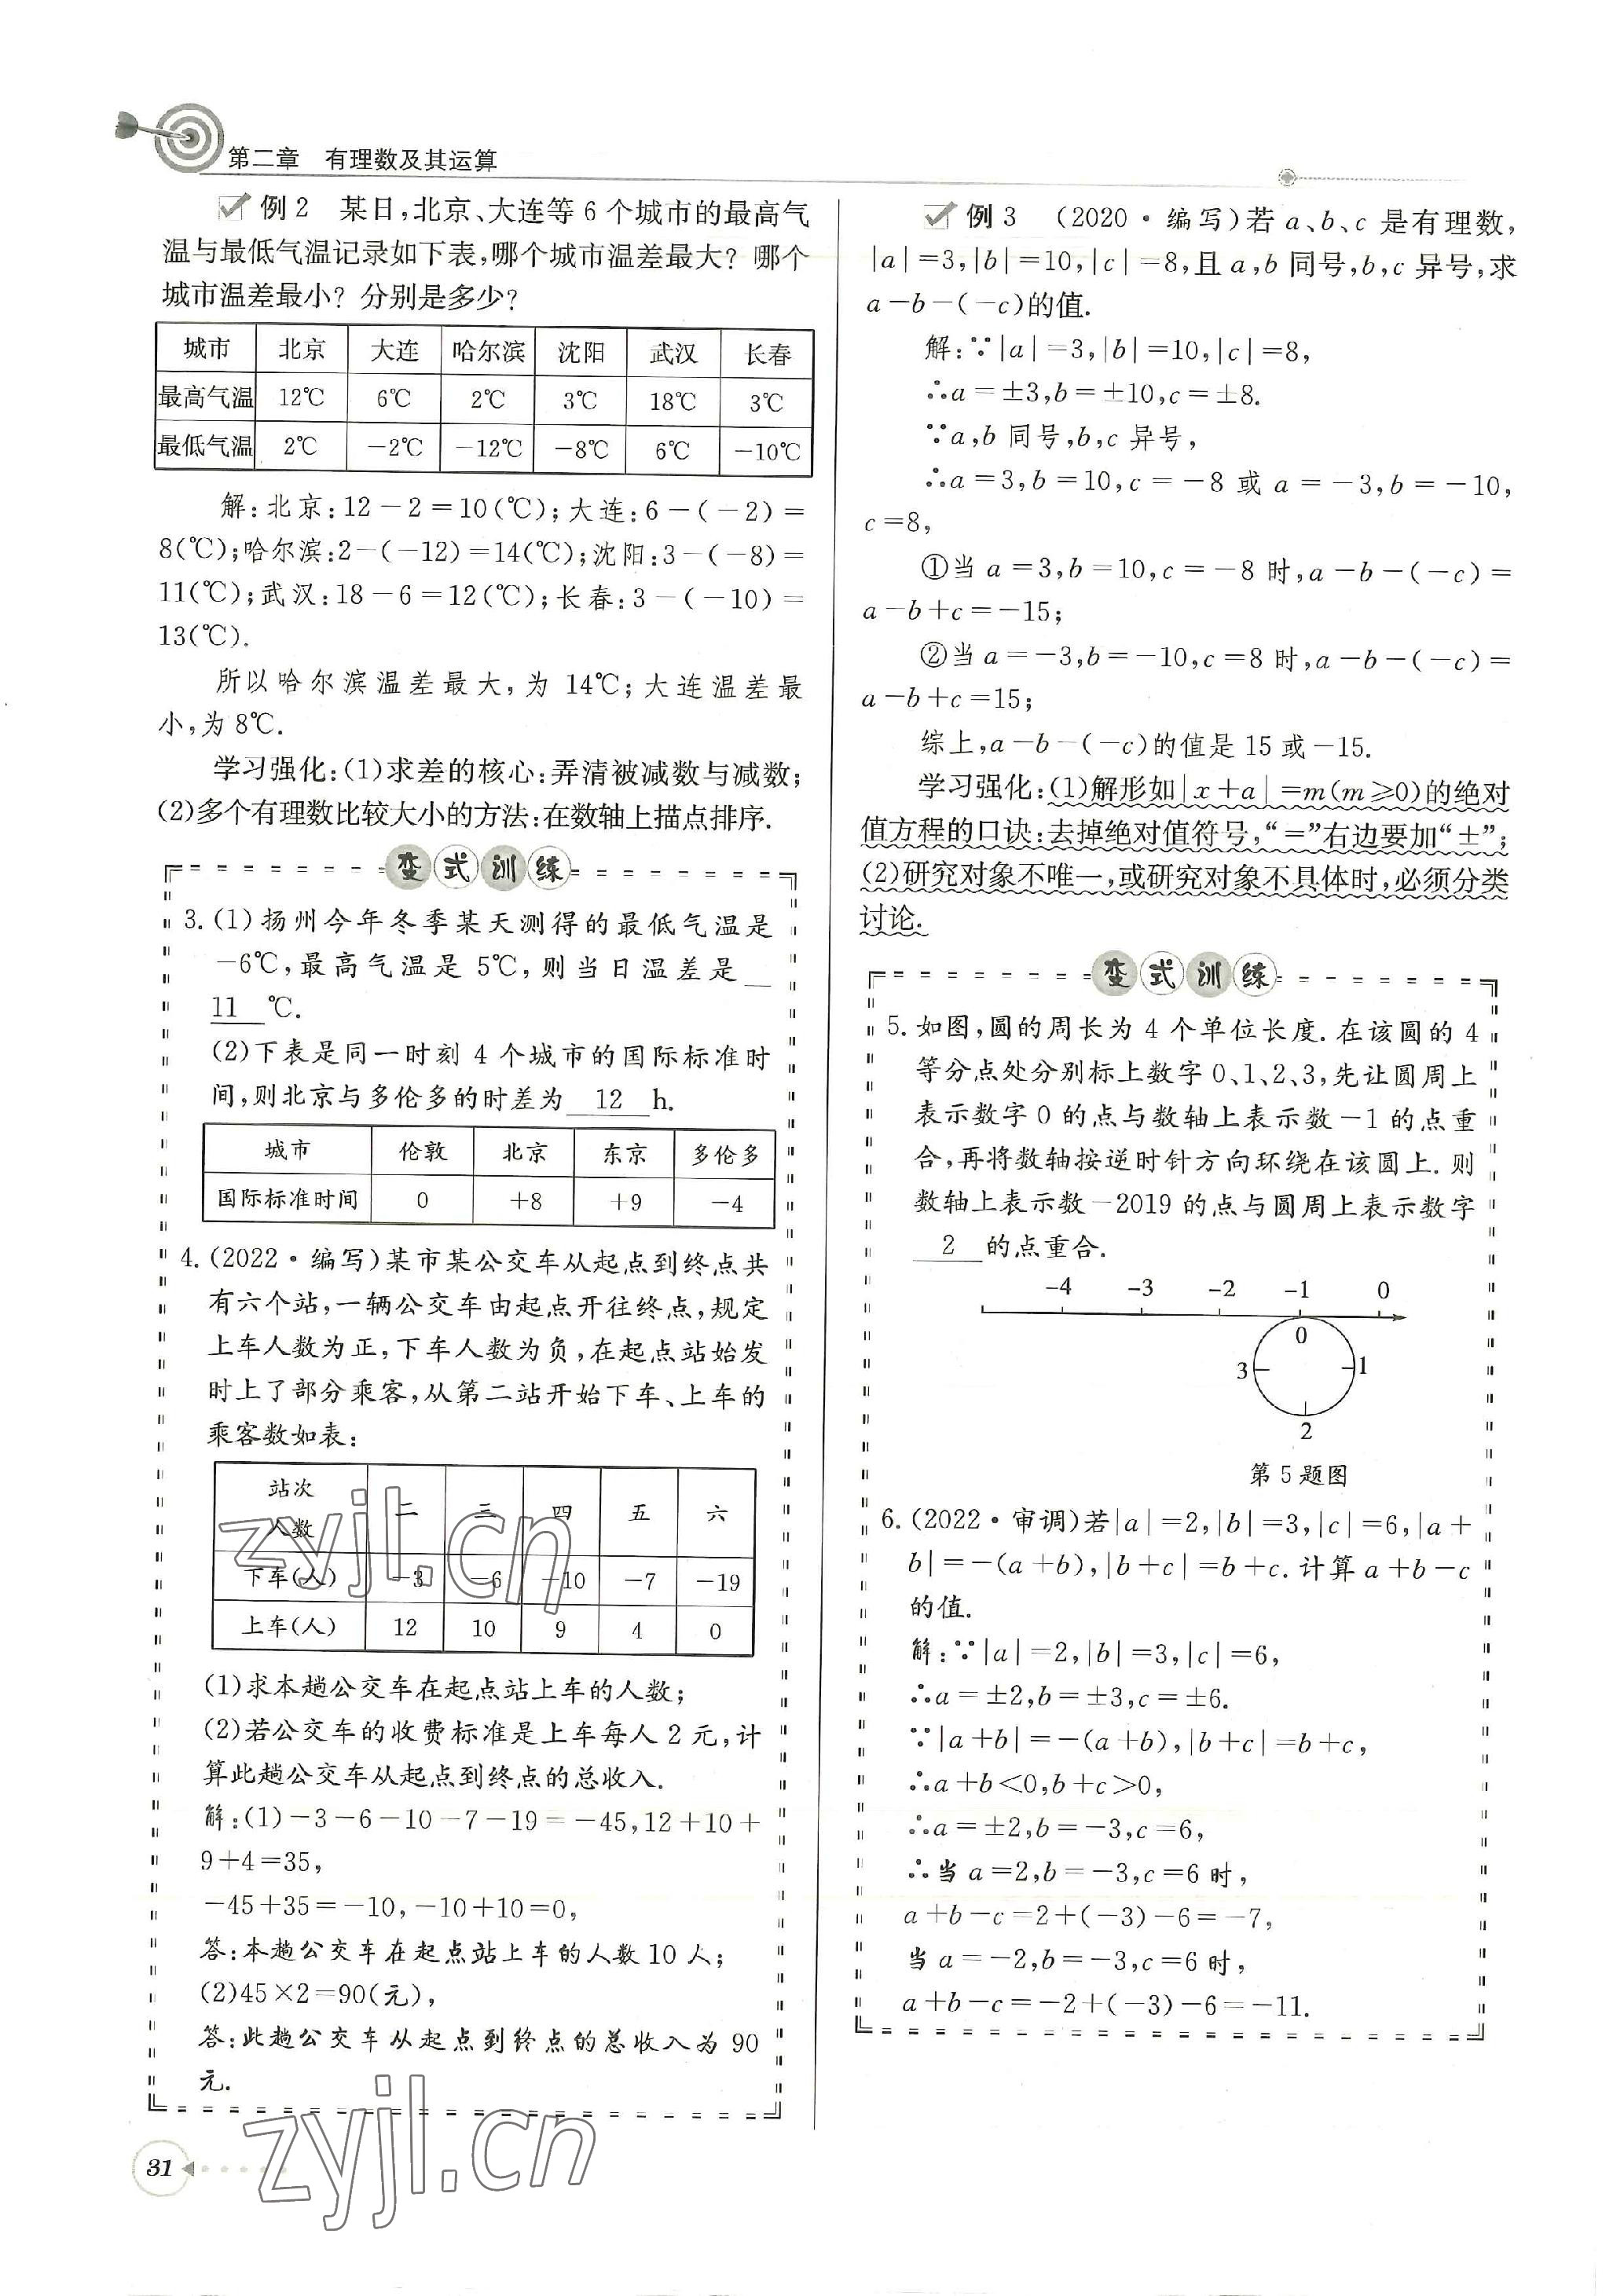 第二章 有理数及其运算
例2 某日,北京、大连等6个城市的最高气
温与最低气温记录如下表,哪个城市温差最大?哪个
城市温差最小?分别是多少?
城市 北京 大连 哈尔滨 沈阳 武汉 长春
最高气温 12℃ 6℃ 2℃ 3℃ 18℃ 3℃
最低气温 2℃ −2℃ −12℃ −8℃ 6℃ −10℃
解:北京:12−2=10(℃);大连:6−(−2)=
8(℃);哈尔滨:2−(−12)=14(℃);沈阳:3−(−8)=
11(℃);武汉:18−6=12(℃);长春:3−(−10)=
13(℃).
所以哈尔滨温差最大,为14℃;大连温差最
小,为8℃.
学习强化:(1)求差的核心:弄清被减数与减数;
(2)多个有理数比较大小的方法:在数轴上描点排序.
变式训练
3.(1)扬州今年冬季某天测得的最低气温是
−6℃,最高气温是5℃,则当日温差是
11 ℃.
(2)下表是同一时刻4个城市的国际标准时
间,则北京与多伦多的时差为 12 h.
城市 伦敦 北京 东京 多伦多
国际标准时间 0 +8 +9 −4
4.(2022·编写)某市某公交车从起点到终点共
有六个站,一辆公交车由起点开往终点,规定
上车人数为正,下车人数为负,在起点站始发
时上了部分乘客,从第二站开始下车、上车的
乘客数如表:
站次
人数 二 三 四 五 六
下车(人) −3 −6 −10 −7 −19
上车(人) 12 10 9 4 0
(1)求本趟公交车在起点站上车的人数;
(2)若公交车的收费标准是上车每人2元,计
算此趟公交车从起点到终点的总收入.
解:(1)−3−6−10−7−19=−45,12+10+
9+4=35,
−45+35=−10,−10+10=0,
答:本趟公交车在起点站上车的人数10人;
(2)45×2=90(元),
答:此趟公交车从起点到终点的总收入为90
元.
31
例3 (2020·编写)若a、b、c是有理数,
|a|=3,|b|=10,|c|=8,且a,b同号,b,c异号,求
a−b−(−c)的值.
解:∵|a|=3,|b|=10,|c|=8,
∴a=±3,b=±10,c=±8.
∵a,b同号,b,c异号,
∴a=3,b=10,c=−8或a=−3,b=−10,
c=8,
①当a=3,b=10,c=−8时,a−b−(−c)=
a−b+c=−15;
②当a=−3,b=−10,c=8时,a−b−(−c)=
a−b+c=15;
综上,a−b−(−c)的值是15或−15.
学习强化:(1)解形如|x+a|=m(m≥0)的绝对
值方程的口诀:去掉绝对值符号,“=”右边要加“±”;
(2)研究对象不唯一,或研究对象不具体时,必须分类
讨论.
变式训练
5.如图,圆的周长为4个单位长度.在该圆的4
等分点处分别标上数字0、1、2、3,先让圆周上
表示数字0的点与数轴上表示数−1的点重
合,再将数轴按逆时针方向环绕在该圆上.则
数轴上表示数−2019的点与圆周上表示数字
2 的点重合.
−4 −3 −2 −1 0
0
3 1
2
第5题图
6.(2022·审调)若|a|=2,|b|=3,|c|=6,|a+
b|=−(a+b),|b+c|=b+c.计算a+b−c
的值.
解:∵|a|=2,|b|=3,|c|=6,
∴a=±2,b=±3,c=±6.
∵|a+b|=−(a+b),|b+c|=b+c,
∴a+b<0,b+c>0,
∴a=±2,b=−3,c=6,
∴当a=2,b=−3,c=6时,
a+b−c=2+(−3)−6=−7,
当a=−2,b=−3,c=6时,
a+b−c=−2+(−3)−6=−11.
zyjl.cn
zyjl.cn